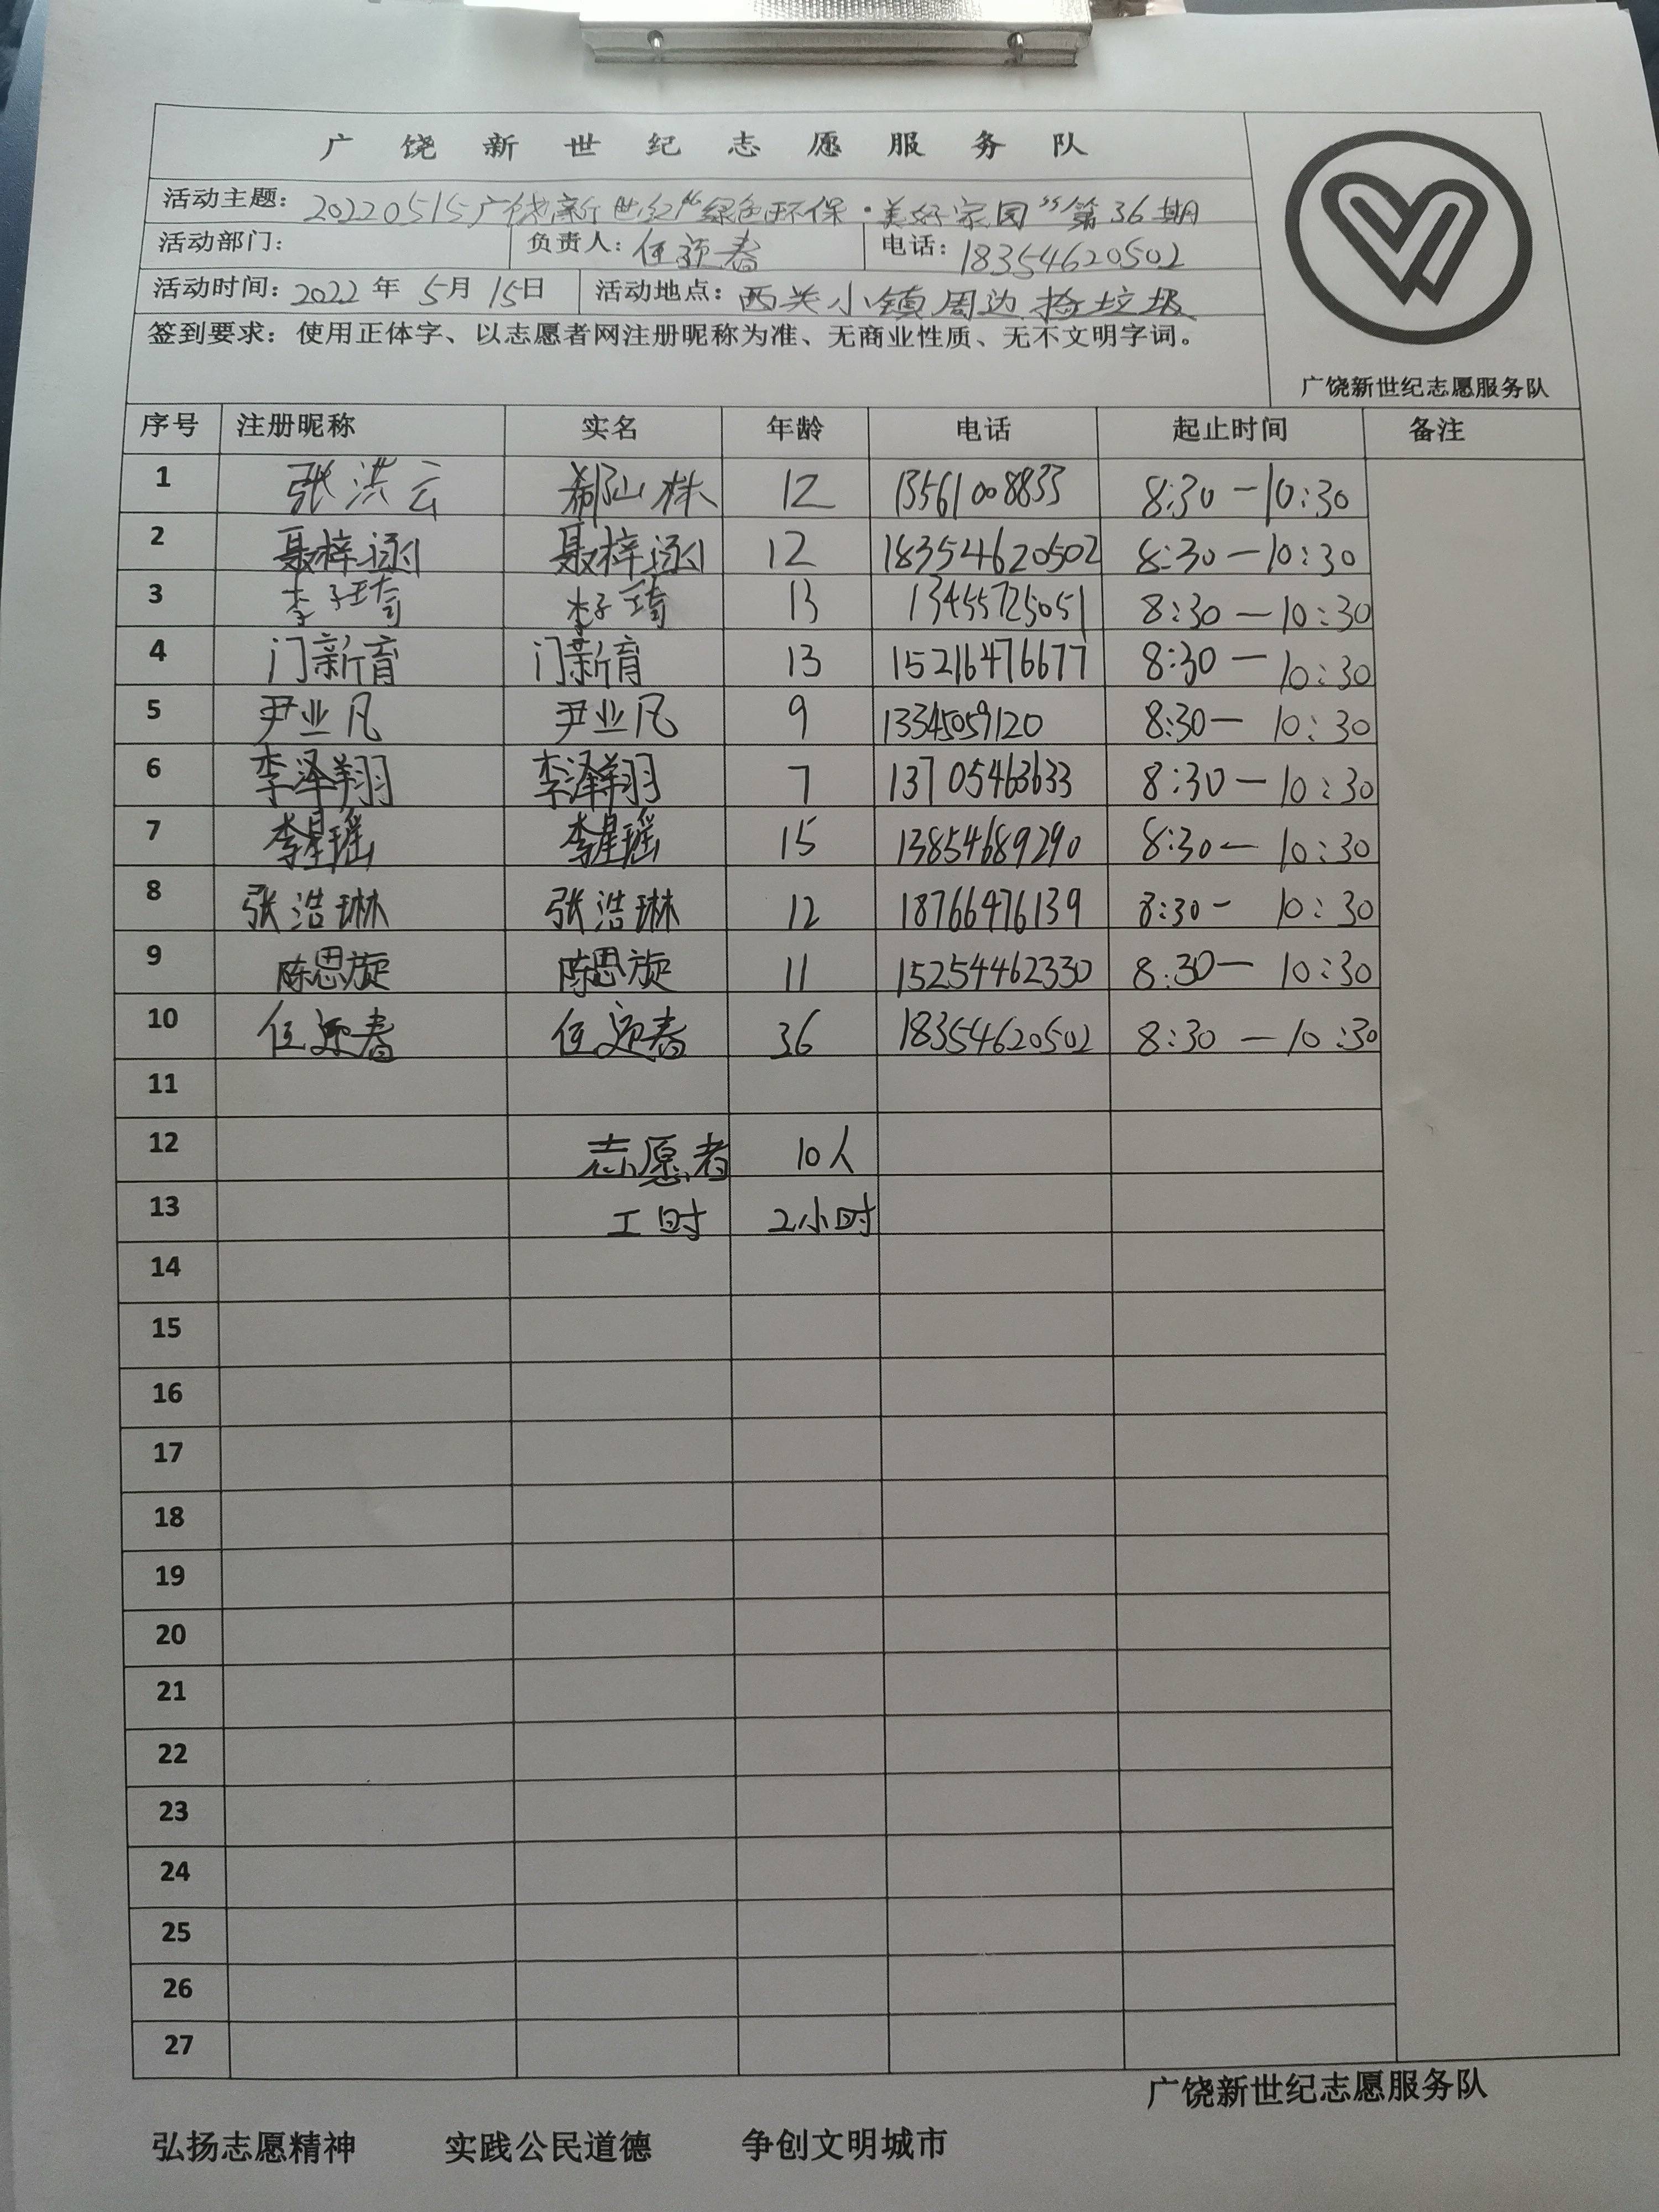 广饶新世纪志愿服务队
活动主题：20220515广饶新世纪“绿色环保·美好家园”第36期
活动部门： 负责人：任迎春 电话：18354620502
活动时间：2022年5月15日 活动地点：西关小镇周边捡垃圾
签到要求：使用正体字、以志愿者网注册昵称为准、无商业性质、无不文明字词。
广饶新世纪志愿服务队
序号 注册昵称 实名 年龄 电话 起止时间 备注
1 张洪云 12 13561008833 8:30—10:30
2 聂梓涵 聂梓涵 12 18354620502 8:30—10:30
3 李子琦 李子琦 13 13455725051 8:30—10:30
4 门新育 门新育 13 15216476677 8:30—10:30
5 尹业凡 尹业凡 9 13345059120 8:30—10:30
6 李泽翔 李泽翔 7 13705463633 8:30—10:30
7 李星瑶 李星瑶 15 13854689290 8:30—10:30
8 张浩琳 张浩琳 12 18766476139 8:30—10:30
9 陈思旋 陈思旋 11 15254462330 8:30—10:30
10 任迎春 任迎春 36 18354620502 8:30—10:30
11
12 志愿者 10人
13 工时 2小时
14
15
16
17
18
19
20
21
22
23
24
25
26
27
广饶新世纪志愿服务队
弘扬志愿精神 实践公民道德 争创文明城市